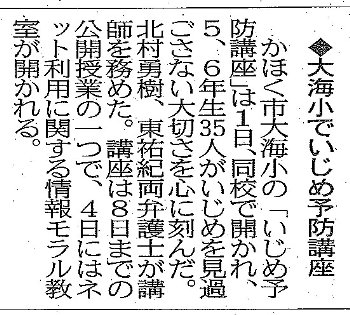 ◆大海小でいじめ予防講座
かほく市大海小の「いじめ予
防講座」は1日、同校で開かれ、
5、6年生35人がいじめを見過
ごさない大切さを心に刻んだ。
北村勇樹、東祐紀両弁護士が講
師を務めた。講座は8日までの
公開授業の一つで、4日にはネ
ット利用に関する情報モラル教
室が開かれる。